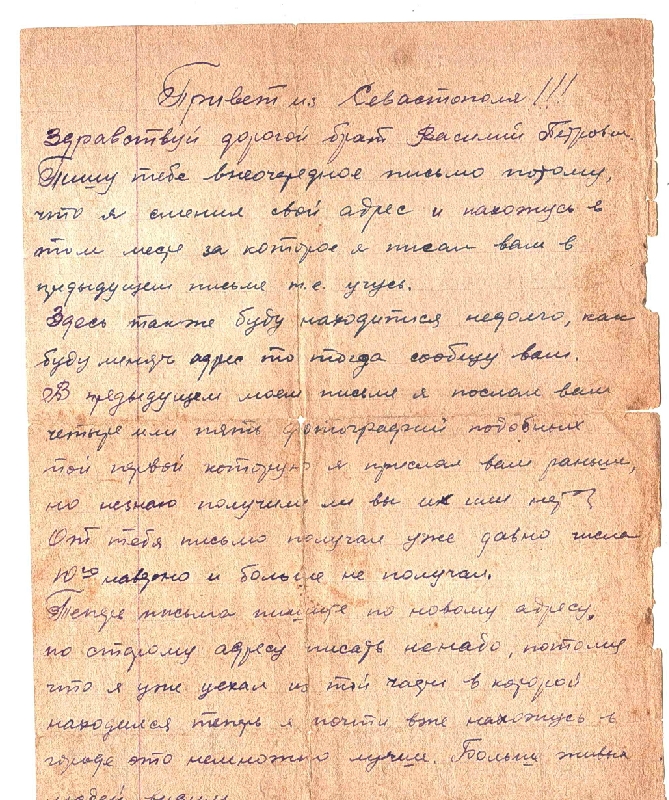 Привет из Севастополя!!!
Здравствуй дорогой брат Василий Петрович.
Пишу тебе внеочередное письмо потому,
что я сменил свой адрес и нахожусь в
том месте за которое я писал вам в
предыдущем письме т.е. учусь.
Здесь также буду находится недолго, как
буду менять адрес то тогда сообщу вам.
В предыдущем моем письме я послал вам
четыре или пять фотографий подобных
той первой которую я прислал вам раньше,
но незнаю получили ли вы их или нет?
От тебя письмо получал уже давно числа
10го наверно и больше не получал.
Теперь письма пишите по новому адресу,
по старому адресу писать ненадо, потому
что я уже уехал из той части в которой
находился теперь я почти вже нахожусь в
городе это немножко лучше. Больше живых
людей